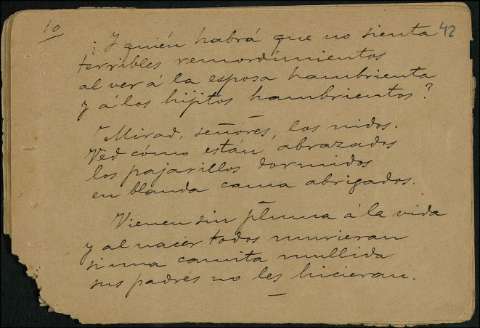 10
¿Y quién habrá que no sienta 42
terribles remordimientos
al ver á la esposa hambrienta
y á los hijitos hambrientos?
"Mirad, señores, los nidos.
Ved cómo están abrazados
los pajarillos dormidos
en blanda cama abrigados.
Vienen sin pluma á la vida
y al nacer todos murieran
si una camita mullida
sus padres no les hicieran.